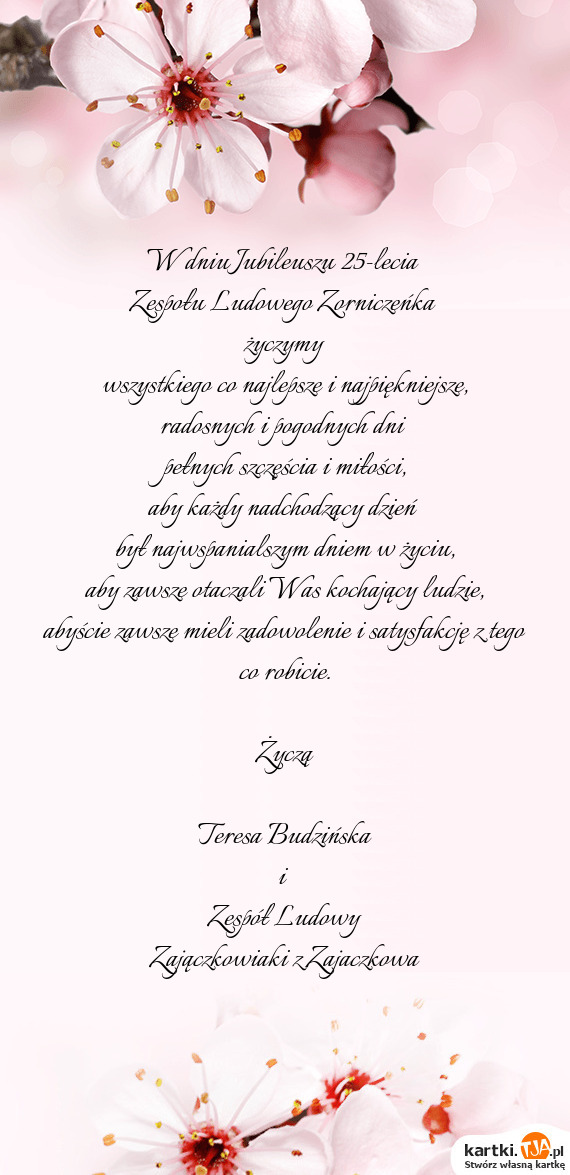 W dniu Jubileuszu 25-lecia
Zespołu Ludowego Zorniczeńka
życzymy
wszystkiego co najlepsze i najpiękniejsze,
radosnych i pogodnych dni
pełnych szczęścia i miłości,
aby każdy nadchodzący dzień
był najwspanialszym dniem w życiu,
aby zawsze otaczali Was kochający ludzie,
abyście zawsze mieli zadowolenie i satysfakcję z tego
co robicie.
Życzą
Teresa Budzińska
i
Zespół Ludowy
Zajączkowiaki z Zajaczkowa
kartki.TJA.pl
Stwórz własną kartkę